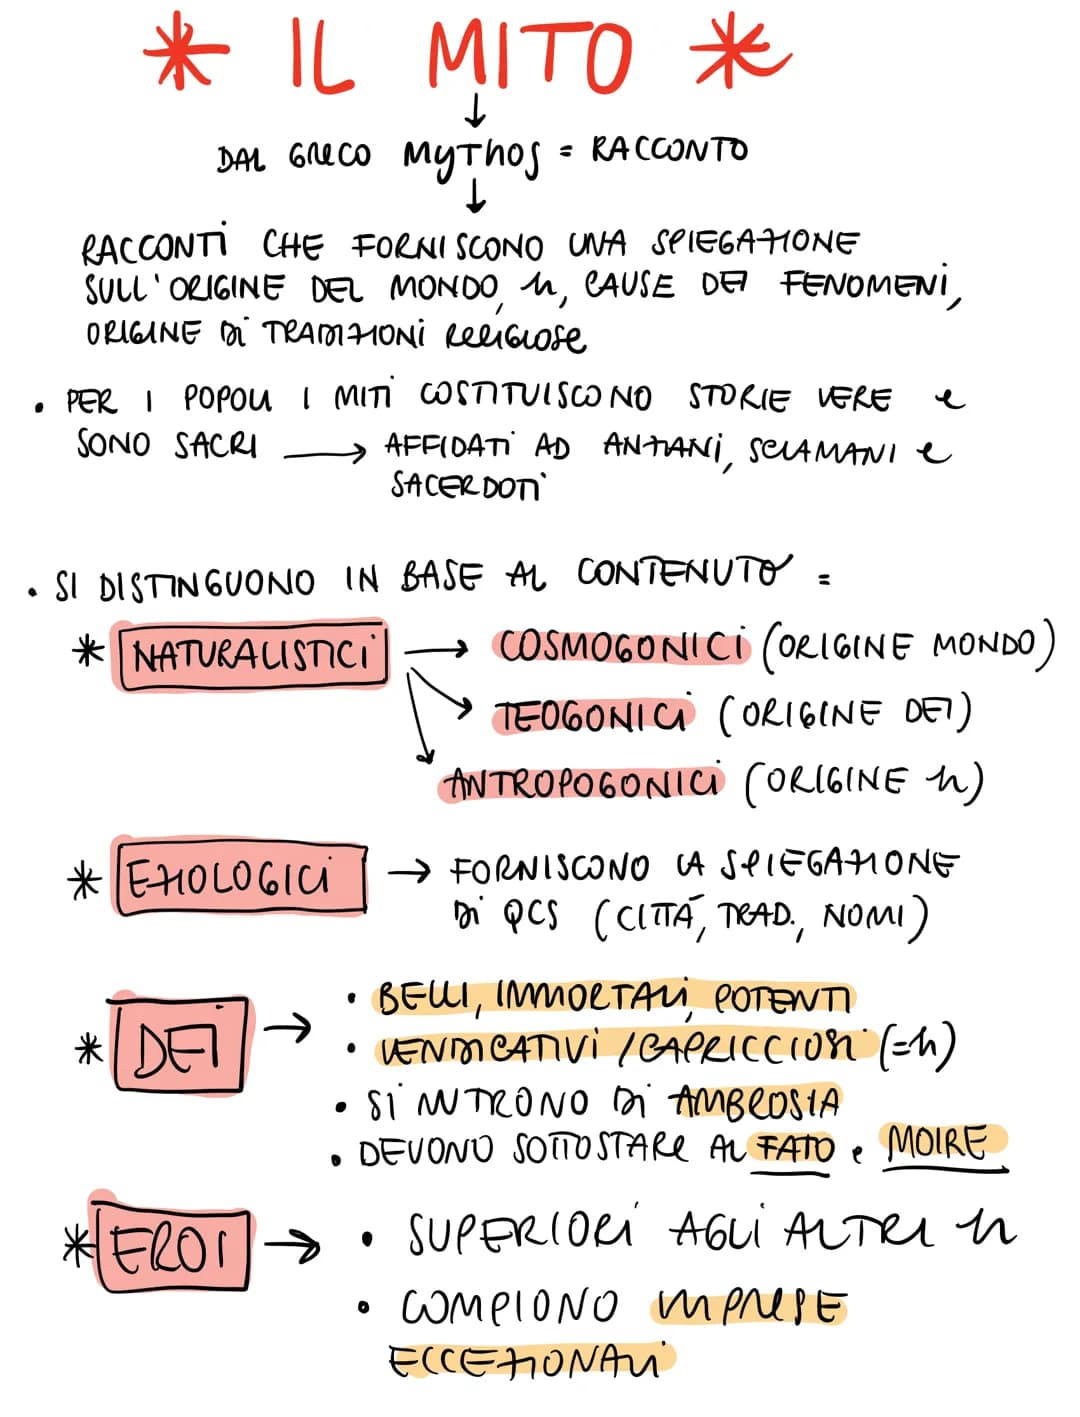 * IL MITO *
↓
DAL GRECO MYTHOS = RACCONTO
↓
RACCONTI CHE FORNISCONO UNA SPIEGAZIONE
SULL'ORIGINE DEL MONDO, h, CAUSE DEI FENOMENI,
ORIGINE DI TRADIZIONI RELIGIOSE
• PER I POPOLI I MITI COSTITUISCONO STORIE VERE e
SONO SACRI → AFFIDATI AD ANZIANI, SCIAMANI e
SACERDOTI
• SI DISTINGUONO IN BASE AL CONTENUTO =
* NATURALISTICI → COSMOGONICI (ORIGINE MONDO)
TEOGONICI (ORIGINE DEI)
ANTROPOGONICI (ORIGINE h)
* EZIOLOGICI → FORNISCONO LA SPIEGAZIONE
DI QCS (CITTÀ, TRAD., NOMI)
* DEI → • BELLI, IMMORTALI, POTENTI
• VENDICATIVI / CAPRICCIOSI (=h)
• SI NUTRONO DI AMBROSIA
• DEVONO SOTTOSTARE AL FATO e MOIRE
* EROI → • SUPERIORI AGLI ALTRI h
• COMPIONO IMPRESE
ECCEZIONALI